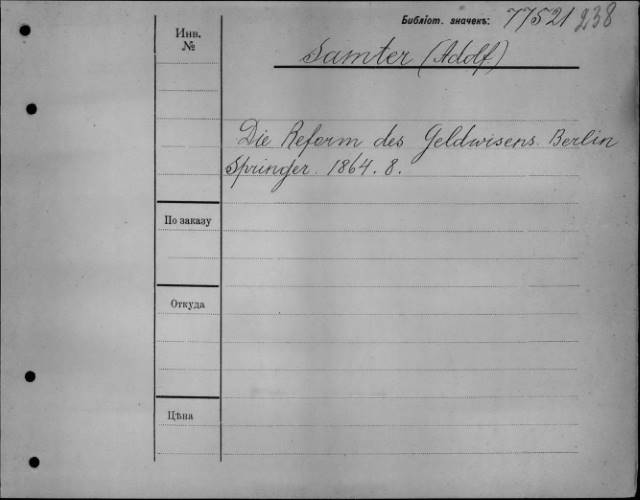 Библіот. значекъ: 77521 238
Инв.
№
Samter (Adolf)
Die Reform des Geldwisens. Berlin
Springer. 1864. 8.
По заказу
Откуда
Цѣна